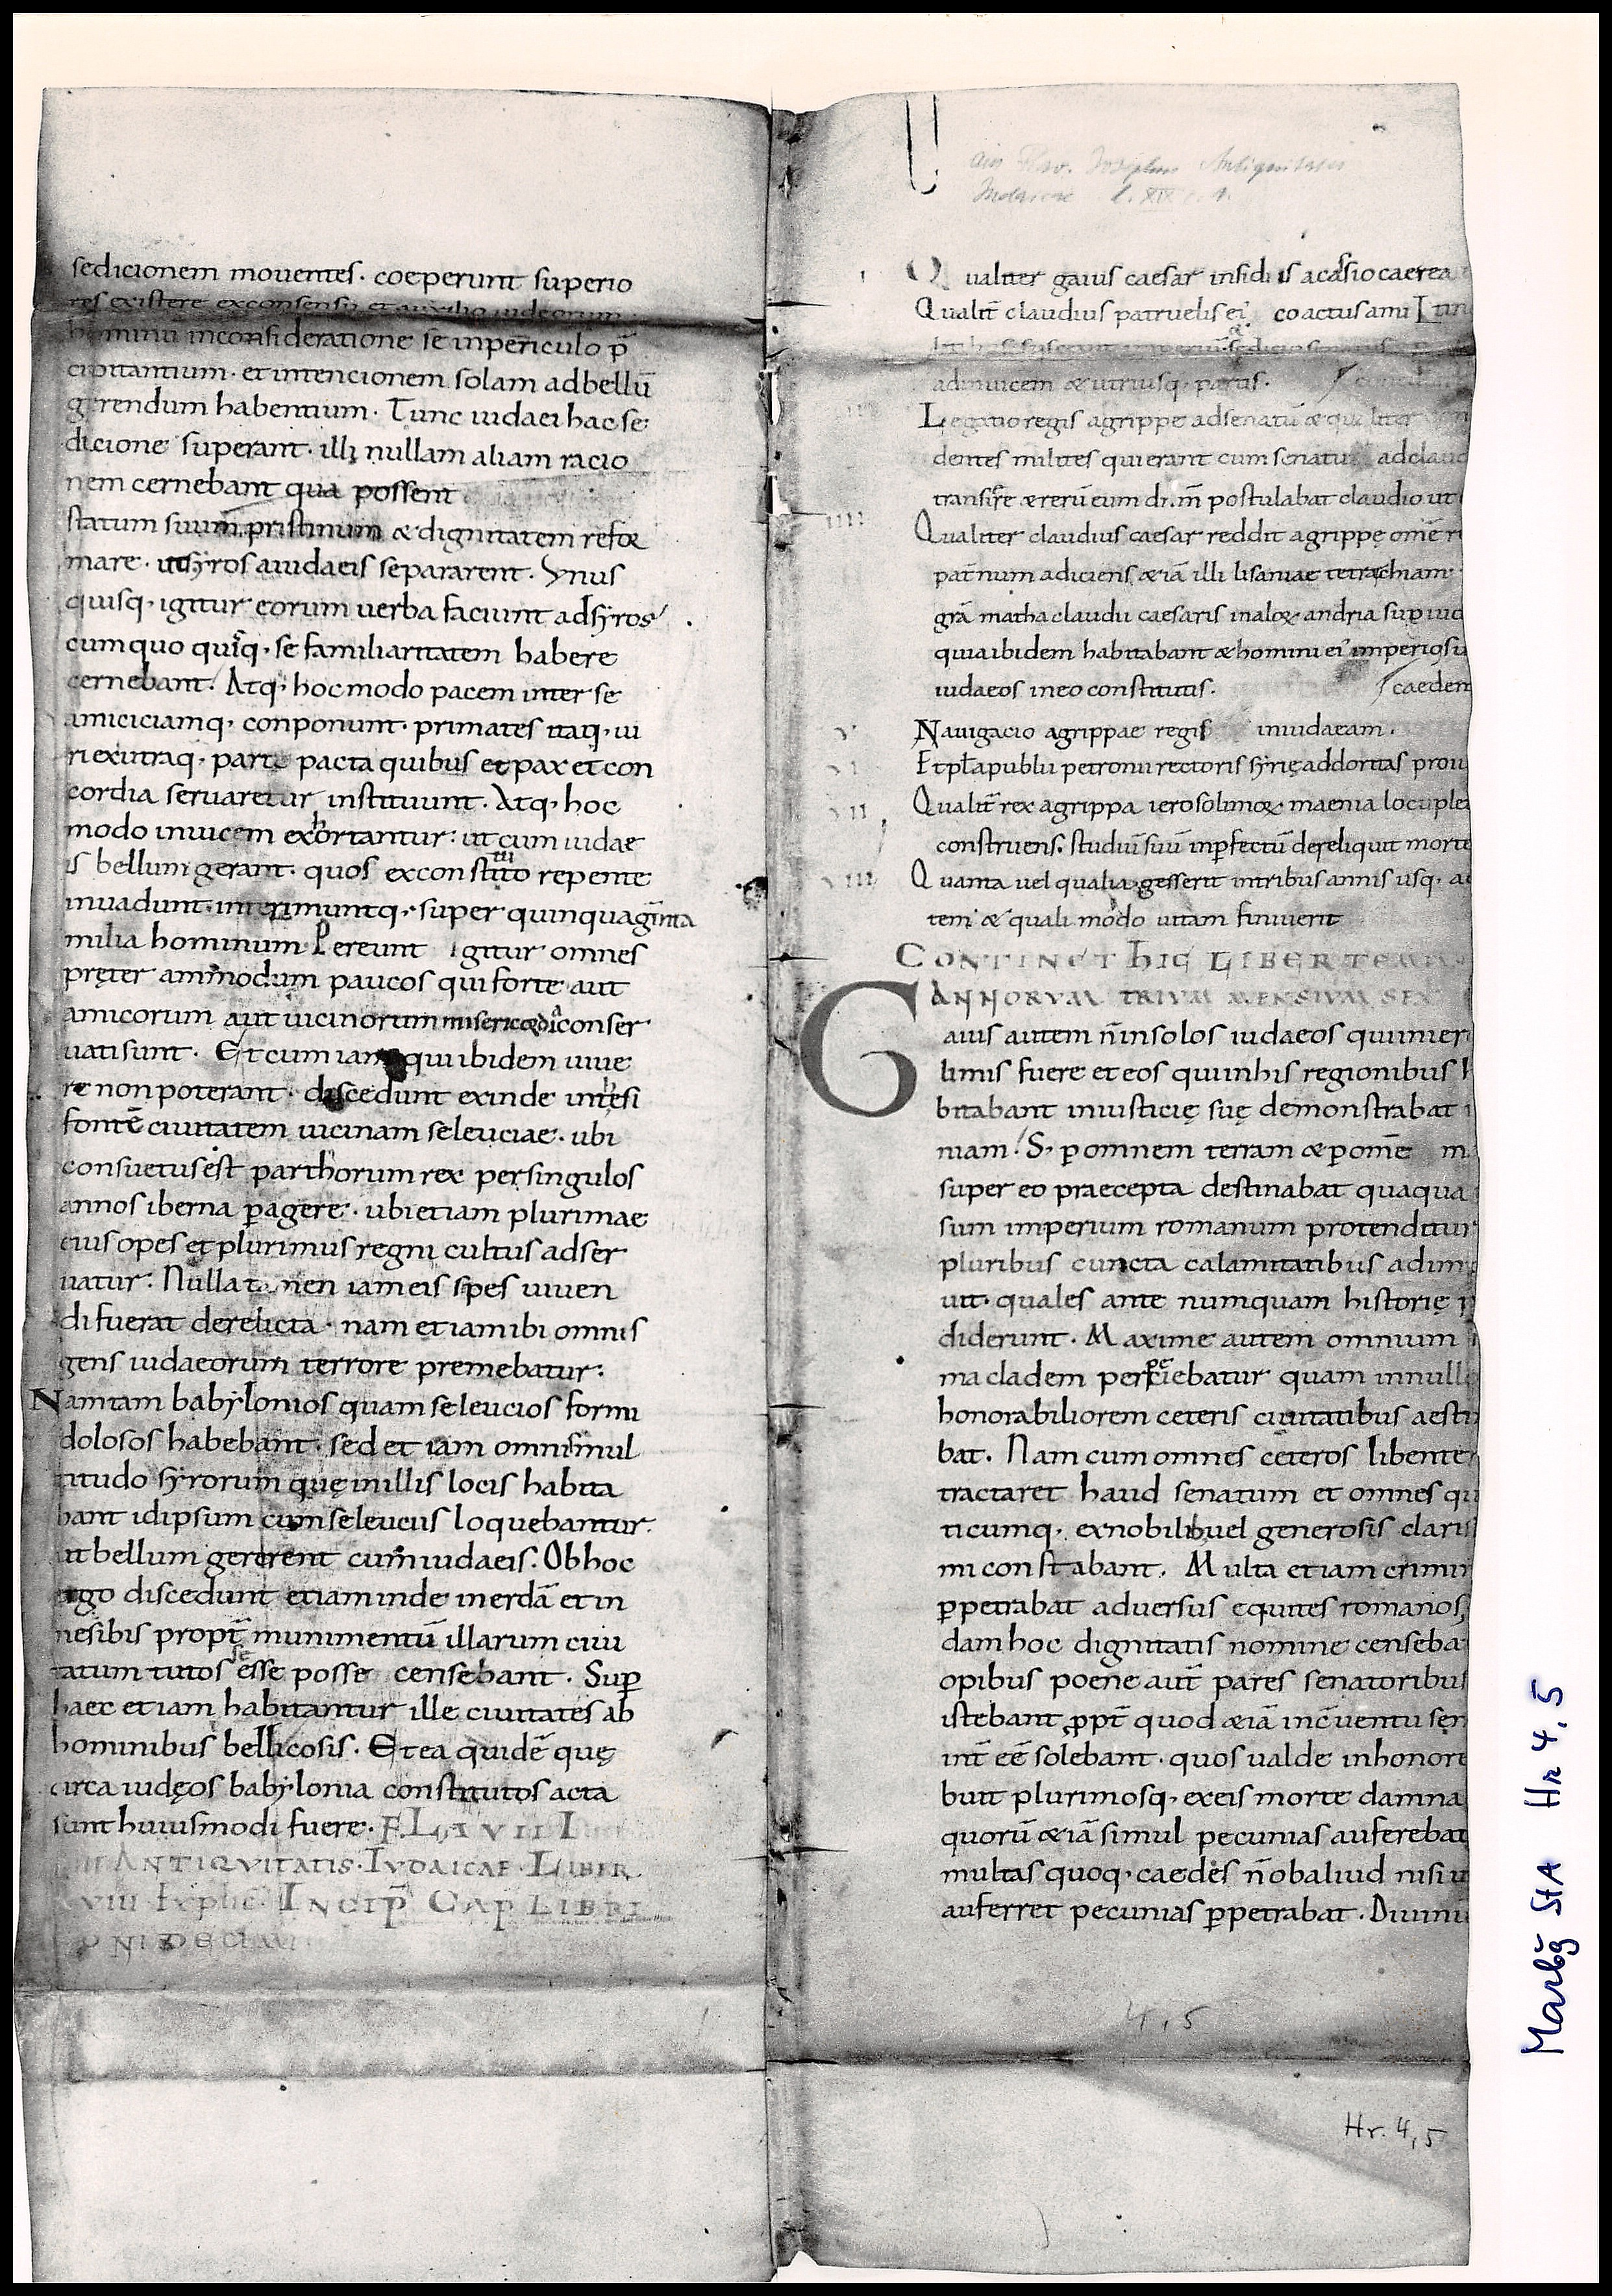 sedicionem mouentes. coeperunt superio
res existere exconsensu et auxilio iudeorum
hominū inconsideratione se inpericulo p̄
cipitantium. et intencionem solam adbellū
gerendum habentium. Tunc iudaei hac se
dicione superant. illi nullam aliam racio
nem cernebant qua possent
statum suum pristinum & dignitatem refor
mare. ut syros aiudaeis separarent. Vnus
quisq. igitur eorum uerba faciunt adsyros
cum quo quisq. se familiaritatem habere
cernebant. Atq. hoc modo pacem inter se
amiciciamq. conponunt. primates itaq. ui
ri exutraq. parte pacta quibus et pax et con
cordia seruaretur instituunt. Atq. hoc
modo inuicem exhortantur: ut cum iudae
is bellum gerant. quos ex constituto repente
inuadunt. interimuntq. super quinquaginta
milia hominum Pereunt igitur omnes
pręter ammodum paucos qui forte aut
amicorum aut uicinorum misericordia conser
uati sunt. Et cum iam qui ibidem uiue
re non poterant. discedunt exinde inthesi
fontē ciuitatem uicinam seleuciae. ubi
consuetus est parthorum rex per singulos
annos iberna p̱agere. ubi etiam plurimae
eius opes et plurimus regni cultus adser
uatur: Nulla tamen iam eis spes uiuen
di fuerat derelicta. nam etiam ibi omnis
gens iudaeorum terrore premebatur:
Nam tam babylonios quam seleucios formi
dolosos habebant. sed et iam omnis mul
titudo syrorum quę in illis locis habita
bant id ipsum cum seleuciis loquebantur.
ut bellum gererent cum iudaeis. Ob hoc
ergo discedunt etiam inde inerdā et in
nesibis propt̄ munimentū illarum ciui
tatum tutos se esse posse censebant. Suꝑ
haec etiam habitantur ille ciuitates ab
hominibus bellicosis. Et ea quidē quę
circa iudęos babylonia constitutos acta
sunt huiusmodi fuere. FLAVII I
ANTIQVITATIS. IVDAICAE. LIBER
VIII Explic. INCIP̄ CAP LIBRI
aus Flav. Josephus Antiquitates
Judaicae l. XIX c. 1.
I Qualiter gaius caesar insidiis acassio caerea
Qualit̄ claudius patruelis ei' coactus a mil
adinuicem & utriusq. partis.
Legatio regis agrippe adsenatū & qualiter
dentes milites qui erant cum senatu ad claud
transire & rerū eum di.m̄ postulabat claudio ut
IIII Qualiter claudius caesar reddit agrippę omē r
pat̄num adiciens &iā illi lisaniae tetrachiam
quia ibidem habitabant & homini ei' imperiosu
iudaeos in eo constitutis. caeden
V Nauigacio agrippae regis in iudaeam.
VI Et epl̄a publii petronii rectoris syrię ad doritas prou
VII Qualit̄ rex agrippa ierosolimor maenia locuple
construens. studiū suū inp̱fectū dereliquit morte
VIII Quanta uel qualia gesserit in tribus annis usq. a
tem & quali modo uitam finiuerit
CONTINET HIC LIBER TEM
ANNORVM TRIVM MENSIVM SEX
Gaius autem n̄ in solos iudaeos qui in ier
limis fuere et eos qui in his regionibus h
bitabant iniusticię suę demonstrabat
niam. S. p̱ omnem terram & p̱ omē m
super eo praecepta destinabat quaqua
sum imperium romanum protenditur
pluribus cuncta calamitatibus adimp
uit. quales ante numquam historię p
diderunt. Maxime autem omnium
ma cladem perpeciebatur quam in null
honorabiliorem ceteris ciuitatibus aesti
bat. Nam cum omnes ceteros libente
tractaret haud senatum et omnes qu
ticumq. ex nobilibus uel generosis claris
mi constabant. Multa etiam crimin
p̱petrabat aduersus equites romanos
dam hoc dignitatis nomine censeba
opibus poene aut̄ pares senatoribus
istebant p̱pt̄ quod &iā inc̄uentu sen
int̄ eē solebant. quos ualde inhonore
buit plurimosq. ex eis morte damna
quorū &iā simul pecunias auferebat
multas quoq. caedes n̄ ob aliud nisi u
auferret pecunias p̱petrabat. Diuini
4,5
Hr. 4,5
Marbg StA Hr 4,5